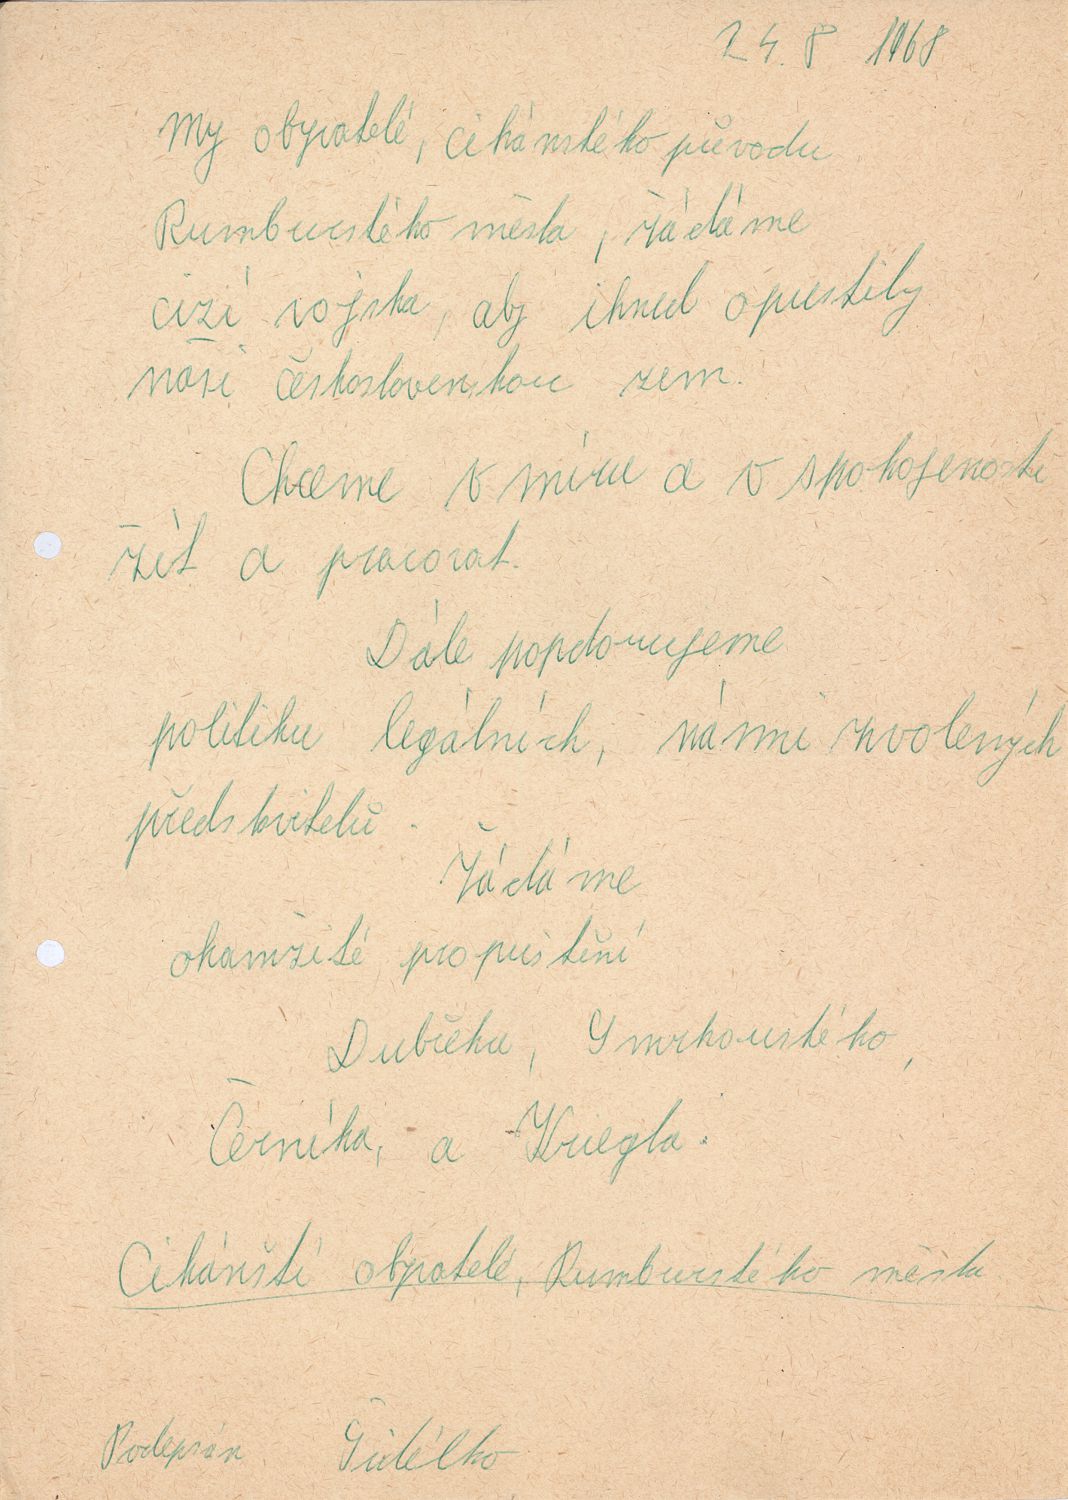 24. 8 1968
My obyvatelé, cikánského původu
Rumburského města, žádáme
cizí vojska, aby ihned opustily
naši československou zem.
Chceme v míru a v spokojenosti
žít a pracovat.
Dále popdorujeme
politiku legálních, námi zvolených
předstvitelů.
Žádáme
okamžité propuštění
Dubčeka, Smrkovského,
Černíka, a Kriegla.
Cikánští obyvatelé, Rumburského města
Podepsán